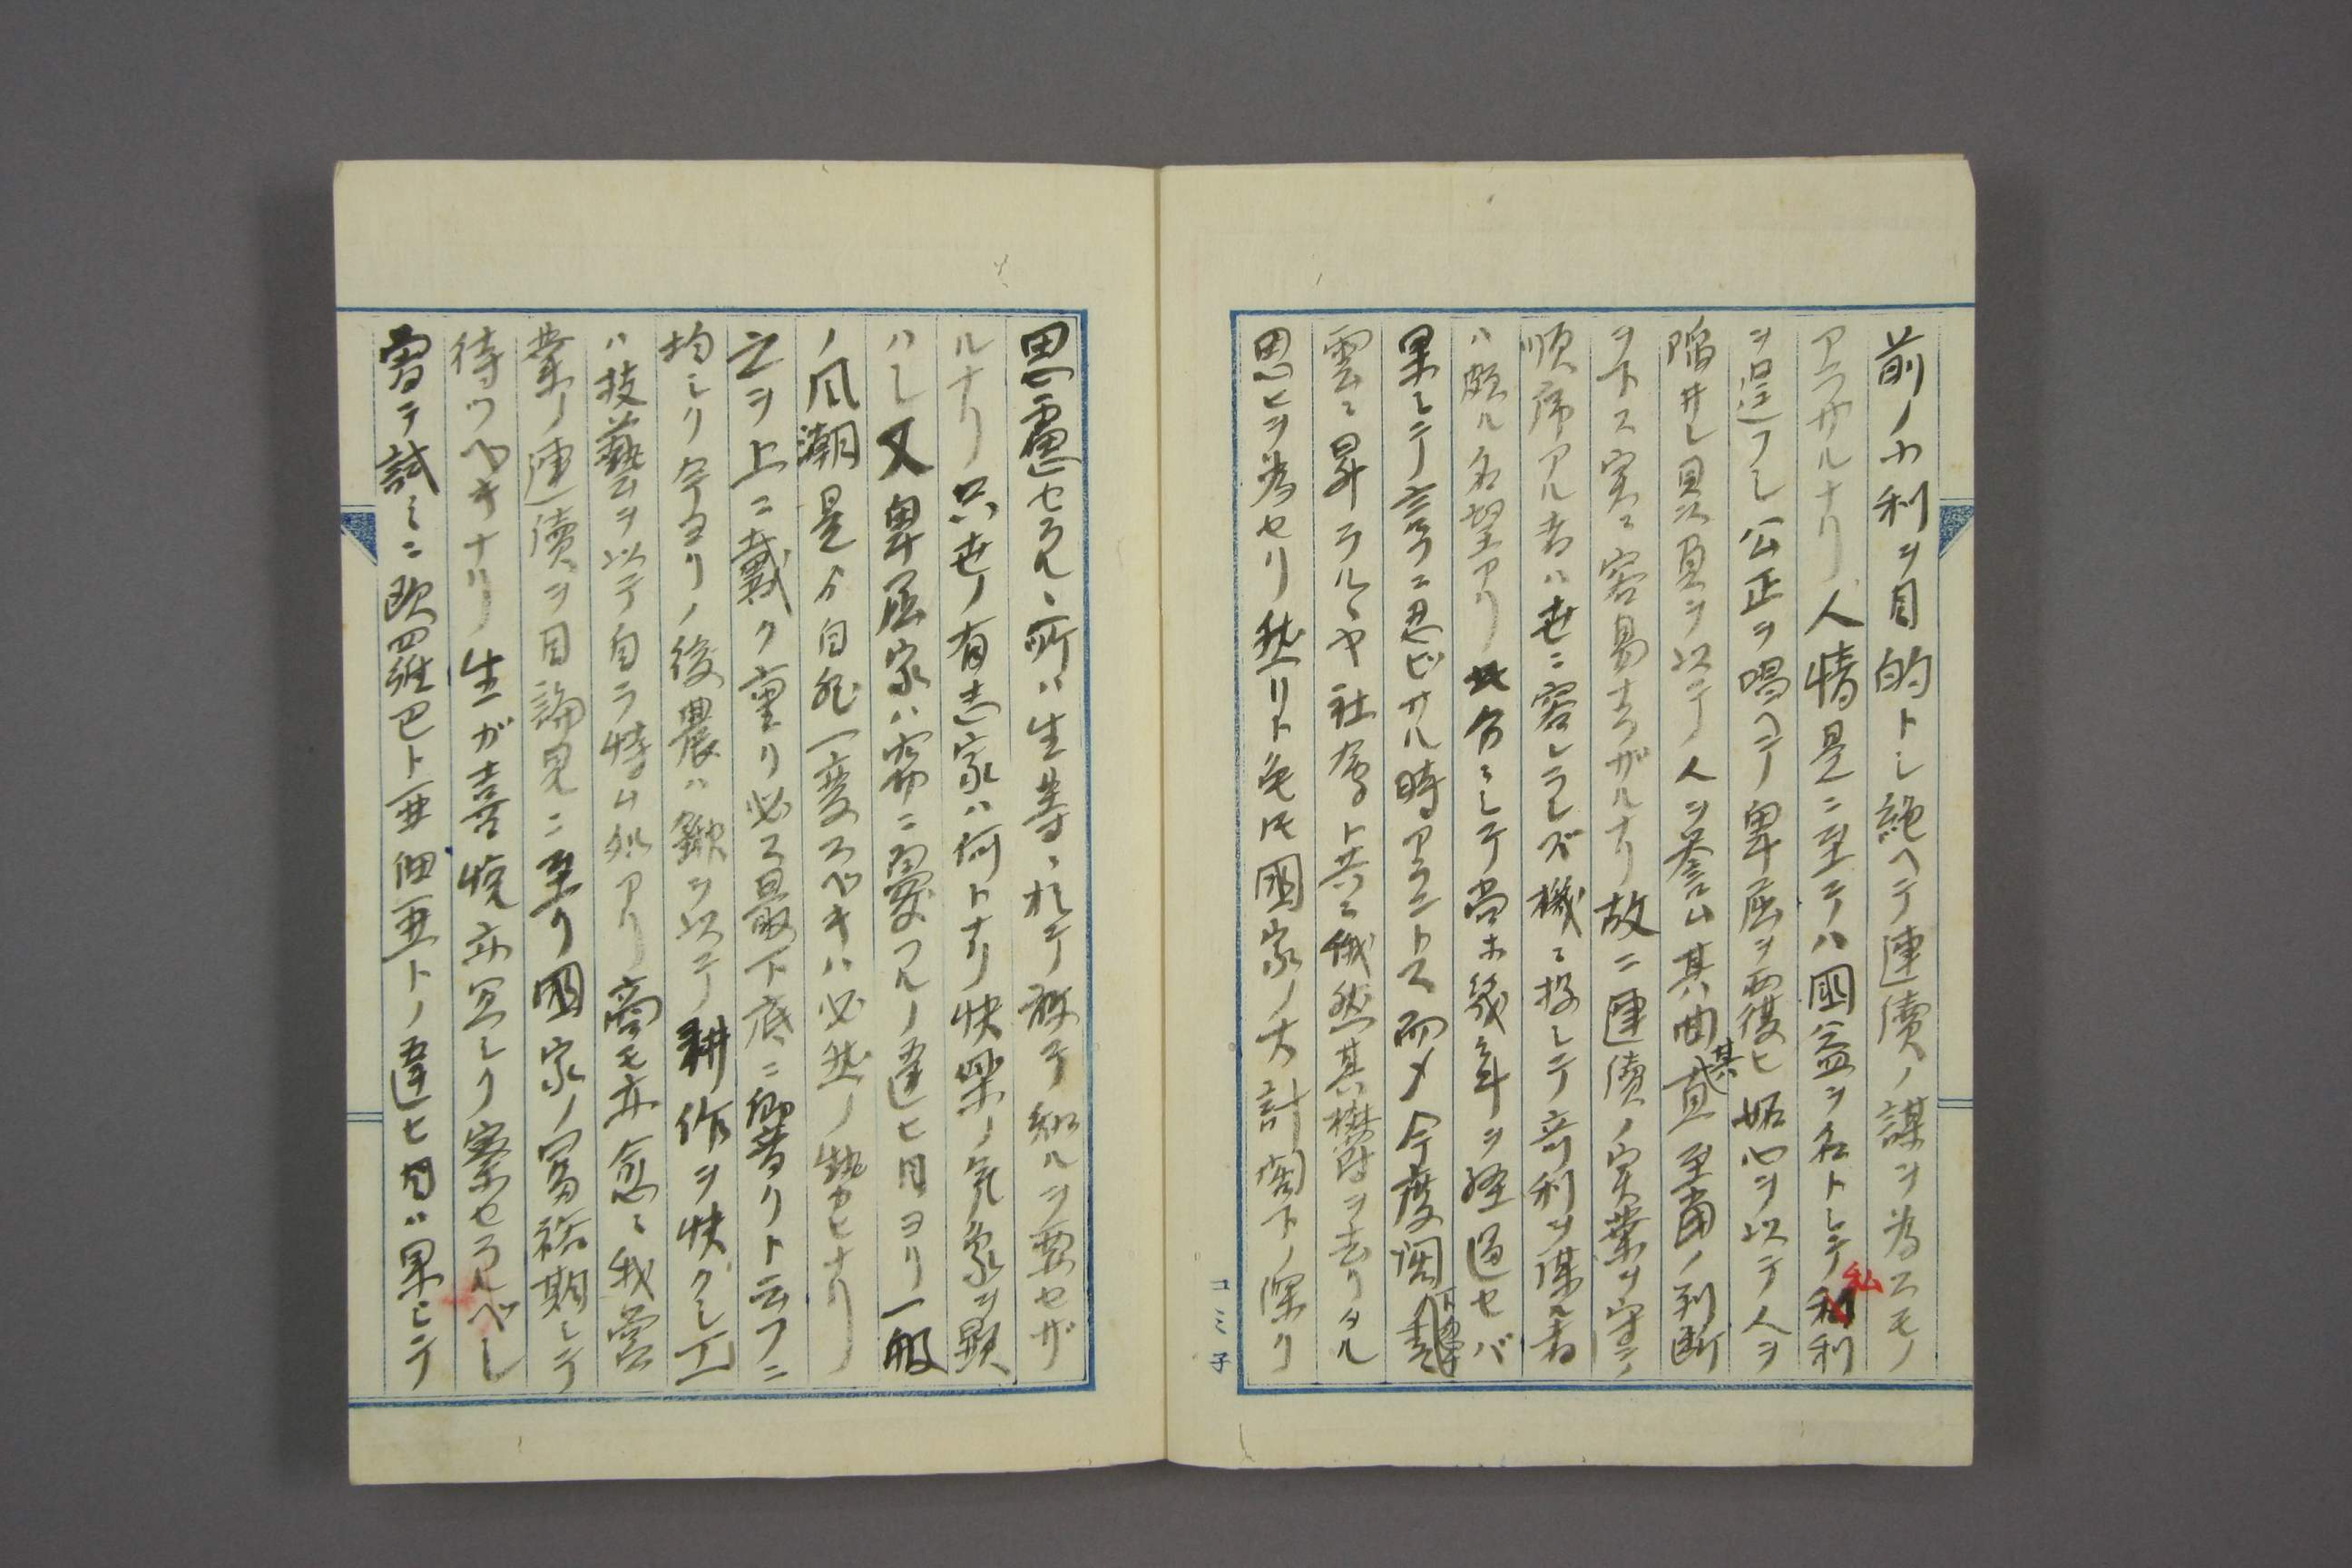 前ノ小利ヲ目的トシ絶ヘテ連續ノ謀ヲ為スモノ
アラザルナリ人情是ニ至テハ國益ヲ名トシテ私利
私
ヲ逞フシ公正ヲ唱ヘテ卑屈ヲ覆ヒ妬心ヲ以テ人ヲ
陥井シ員ヲ以テ人ヲ誉ム其曲直至當ノ判断
其
ヲ下ス実ニ容易ナラザルナリ故ニ連續ノ実業ヲ守テ
順序アル者ハ世ニ容レラレズ機ニ投シテ奇利ヲ謀ル者
ハ頗ル名望アリ此分ニシテ尚ホ幾年ヲ経過セバ
果シテ言フニ忍ビザル時アラントス而メ今度閣下
雲ニ昇ラルヽヤ社友ト共ニ俄然其欝ヲ去リタル
思ヒヲ為セリ然リト雖モ國家ノ大計閣下ノ深ク
コミ子
思慮セラルヽ所ハ生等ニ於テ敢テ知ルヲ要セザ
ルナリ只世ノ有志家ハ何トナク快樂ノ気象ヲ顕
ハシ又卑屈家ハ窃ニ憂フルノ違ヒ目ヨリ一般
ノ風潮是ゟ自然一変スベキハ必然ノ勢ヒナリ
之ヲ上ニ戴ク重リ必ス最下底ニ響クト云フニ
均シク今ヨリノ後農ハ鍬ヲ以テ耕作ヲ快クシ工
ハ技藝ヲ以テ自ラ恃ム処アリ商モ亦愈ニ我営
業ノ連續ヲ目論見ニ至リ國家ノ富裕期シテ
待ツヘキナリ生ガ喜悦亦宜シク察セラルベシ
曽テ試ミニ欧羅巴ト亜細亜トノ違ヒ目ハ果シテ